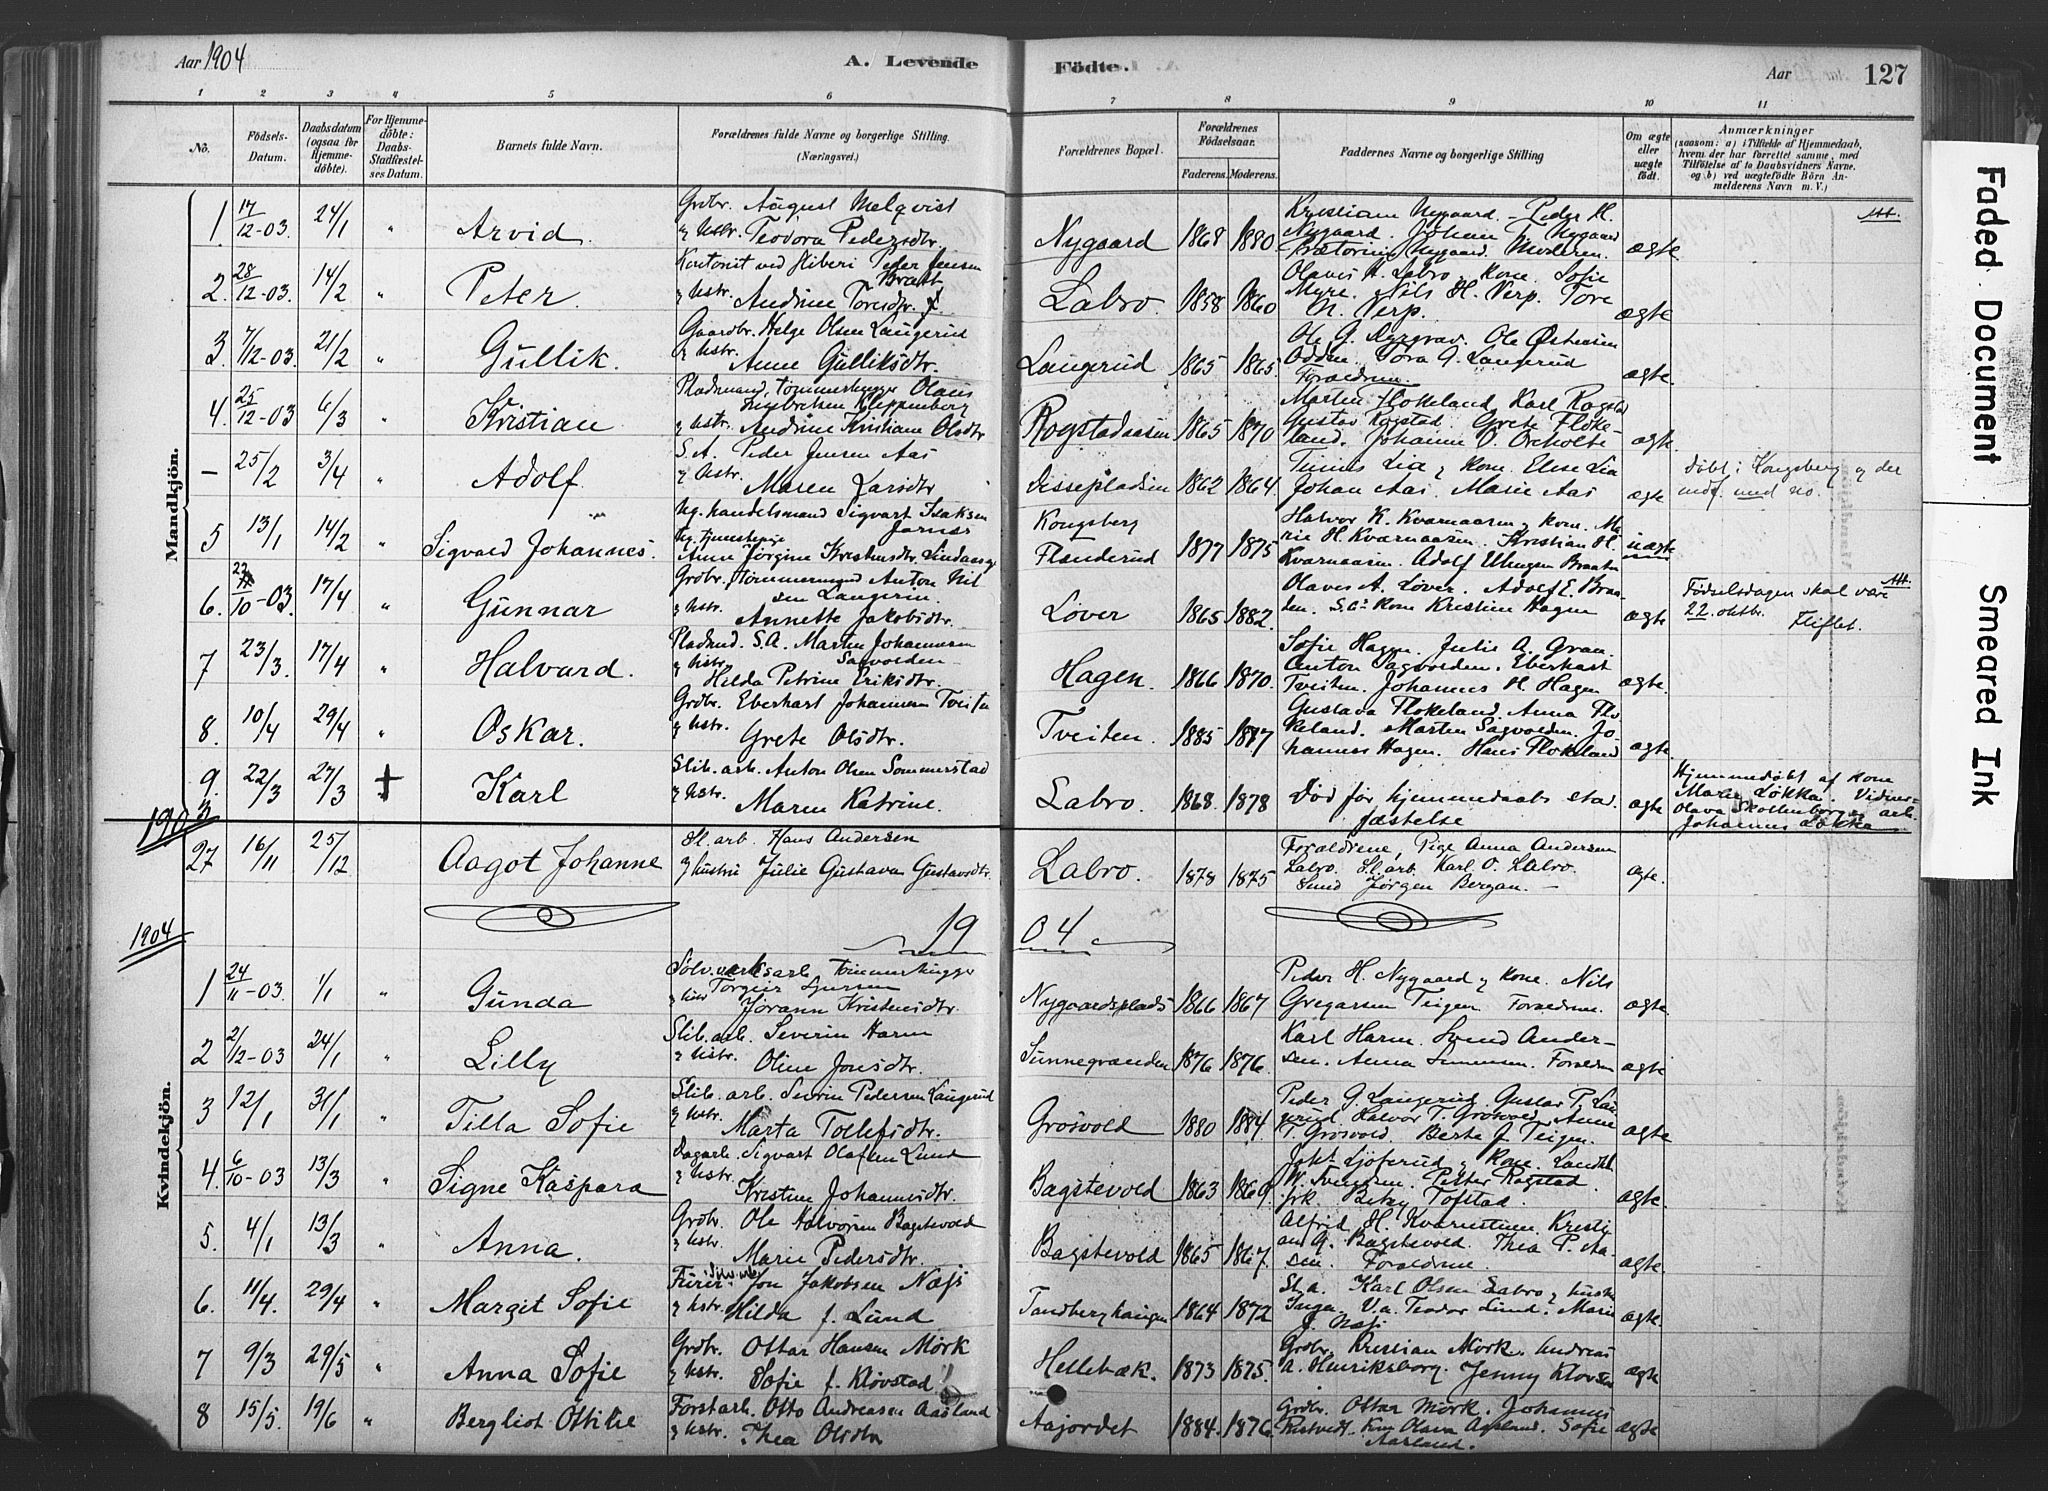 Aar 1904
A. Levende Födte.
Aar 127
1 2 3 4 5 6 7 8 9 10 11
No.
Födsels-Datum.
Daabsdatum (ogsaa for Hjemmedöbte).
For Hjemmedöbte: Daabs-Stadfæstelses Datum.
Barnets fulde Navn.
Forældrenes fulde Navne og borgerlige Stilling. (Næringsvei.)
Forældrenes Bopæl.
Forældrenes Födselsaar.
Faderens. Moderens.
Faddernes Navne og borgerlige Stilling
Om ægte eller uægte födt.
Anmærkninger
(saasom: a) i Tilfælde af Hjemmedaab, hvem der har forrettet samme, med Tilföielse af to Daabsvidners Navne. og b) ved uægtefödte Börn Anmelderens Navn m. V.)
Mandkjön.
1. 17/12-03. 24/1 " Arvid.
Grdbr. August Melqvist
& hstr. Teodora Pedersdtr.
Nygaard 1868 1880
Kristian Nygaard. Peder H.
Nygaard. Johan T. Nygaard
Nygaard. Moderen.
ægte Att.
2. 28/12-03. 14/2 " Peter.
Peder Jensen
Bratt
& hstr. Andrine Toresdtr.
Labro. 1858 1860
Olaves H. Labro & kone. Sofie
Myre. Nils H. Verp. Tore
N. Verp.
ægte
3. 7/12-03. 21/2 " Gullik.
Gaardbr. Helge Olsen Laugerud
& hstr. Anne Gulliksdtr.
Laugerud 1865 1865.
Ole G. Ole Østeren
Odden. Tora G. Laugerud
Forældrene
ægte.
4. 25/12-03 6/3 " Kristian
Pladsmand, tømmerhugger Olaus
Kleppenberg
& hstr. Andrine Kristiane Olsdtr
Rogstadaasen 1865 1870
Marten Flokeland Karl Rogstad
Gustav Rogstad. Grete Floke-
land. Johanne O.
ægte
- 25/2 3/4 " Adolf.
S.A. Peder Jensen Aas
& hstr. Maren Larsdtr
Dissepladsen 1862 1864.
Lia & kone. Elise Lia
Johan Aas. Marie Aas
ægte
Døbt i Kongsberg og der
indf. med no.
5 13/1 14/2 " Sigvald Johannes.
Ug. handelsmand Sigvart Isaksen
Ug. tjenestepige
Anne Jørgine Kristensdtr.
Kongsberg
Flenderud 1877 1875
Halvor K. Kvarnaasen & kone. Ma-
rie H. Kvarnaasen. Kristian H.
Kvarnaasen. Adolf Braaten
uægte
6. 22/10-03. 17/4 " Gunnar
Grdbr. Tømmermand Anton Nil-
sen Langerin.
& hstr. Annette Jakobsdtr.
Løver 1865 1882.
Olaves A. Løver. Adolf E. Braa-
ten. kone Kristine Hagen
ægte
Att.
Fødselsdagen skal være
22. oktbr. Fliflet.
7 23/3 17/4 " Halvard.
Pladsmd. S.A. Martin Johannesen
Sagvolden
& hstr. Hilda Petrine Eriksdtr.
Hagen. 1866 1870.
Sofie Hagen. Julie A. Gran.
Anton Sagvolden. Eberhart
Tveiten. Johannes H. Hagen
ægte.
8. 10/4 29/4 " Oskar.
Grdbr. Eberhart Johannesen Tveiten
& hstr. Grete Olsdtr.
Tveiten. 1885 1877
Gustava Flokeland. Anna Flo-
keland. Marten Sagvolden. Jo-
hannes Hagen. Hans Flokeland
ægte
9. 22/3 27/3 + Karl
Slib. arb. Anton Olsen Sommerstad
& hstr. Maren Katrine.
Labro. 1868. 1878
Død før hjemmedaabs stad-
fæstelse
ægte
Hjemmedøbt af kone
Marie Løkka. Vidner:
Olava Skollenborg & arb.
Johannes Løkka
1903
27 16/11 25/12 Aagot Johanne
Sl. arb Hans Andersen
& hustru Julie Gustava Gustavsdtr.
Labro. 1878 1875
Forældrene, Pige Anna Andersen
Labro. Sl. arb Karl O. Labro.
Smed Jørgen Bergan.
ægte.
1904
1904
Kvindekjön.
1 24/11-03. 1/1 " Gunda
Sølvverksarb tømmerhugger
Torgeir
& hstr Jorann Kristensdtr.
Nygaardsplads 1866 1867
Peder H. Nygaard & kone. Nils
Gregarsen Teigen. Forældrene.
ægte.
2 2/12-03 24/1 " Lilly
Slib. arb. Severin Harm
& hstr. Oline Jonsdtr.
Sünnegranden 1876 1876.
Karl Harm. Svend Ander-
sen. Anna Simensen. Forældrene
ægte
3 12/1 31/1 " Tilla Sofie
Slib. arb. Severin Pedersen Laugerud
& hstr. Marta Tollefsdtr.
Grosvold 1880 1884.
Peder G. Laugerud. Gustav P. Lau-
gerud. Halvor T. Grosvold. Anne
T. Grosvold. Berte J. Teigen.
ægte
4. 6/10-03 13/3 " Signe Kaspara
Dagarb. Sigvart Olafsen Lund
& hstr. Kristine Johannesdtr.
Bagstevold 1863 1869.
Ljøterud & kone. Landh.
W. Svensen. Petter Rogstad
frk. Betzy Tofstad
ægte.
5. 4/1 13/3 " Anna.
Grdbr. Ole Halvorsen Bagstevold
& hstr. Marie Pedersdtr.
Bagstevold 1865 1867.
Alfrid H. Kvernstuen Kristi-
an G. Bagstevold. Thea P. Aa-
sen. Forældrene.
ægte.
6. 11/4. 29/4 " Margit Sofie
Furer Jon Jakobsen Næss
& hstr. Hilda f. Lund
Tandberghaugen 1864 1872
St.a. Karl Olsen Labro & hustru
Inga. V.a. Teodor Lund. Marie
J. Næss
ægte.
7 9/3 29/5 " Anna Sofie
Grdbr. Ottar Hansen Mørk
& hstr. Sofie f. Kløvstad
Hellebæk. 1873 1875.
Grdbr. Kristian Mørk. Andreas
A. Henriksborg. Jenny Kløvstad
ægte
8 15/5. 19/6 " Bergliot Ottilie
Forstarb. Otto Andreasen Aasland
& hstr. Thea Olsdtr
Aajordet 1884. 1876.
Grdbr. Ottar Mørk. Johannes
Rustvedt. Olava Aasland. Sofie
Aasland.
ægte
Faded Document
Smeared Ink